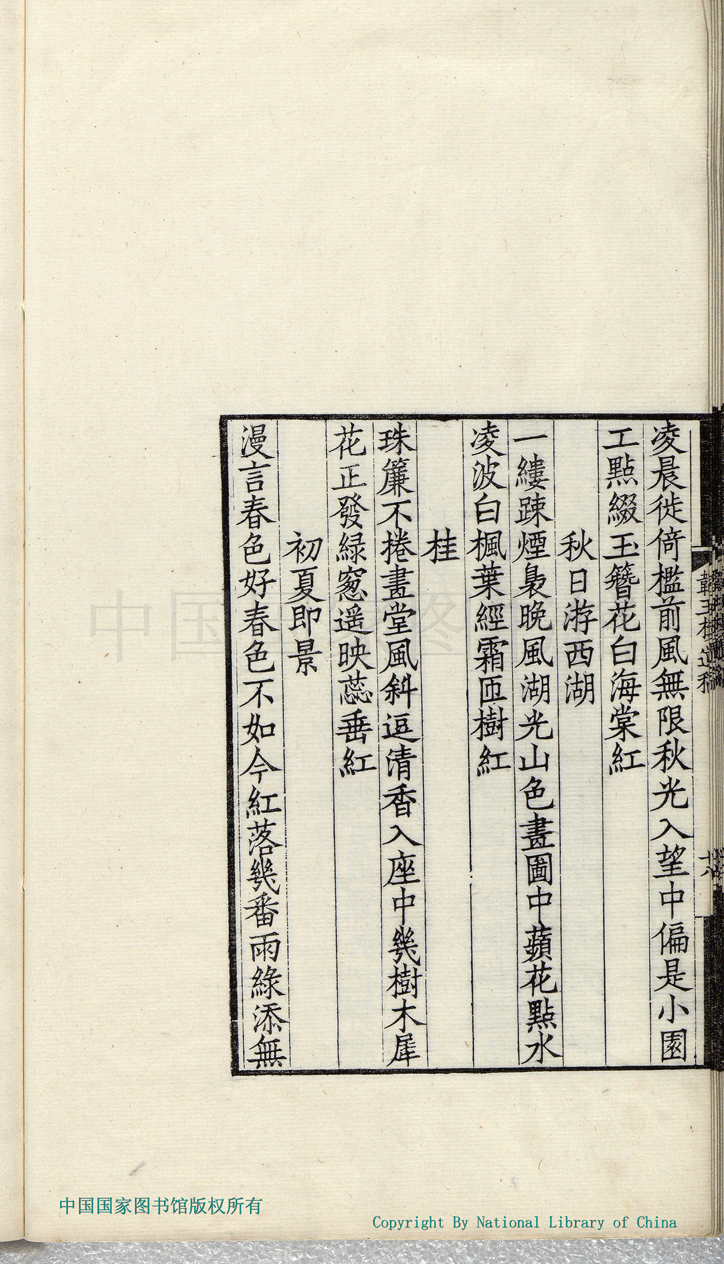 凌晨徙倚檻前風無限秋光入望中偏是小園
工點綴玉簪花白海棠紅
秋日游西湖
一縷踈煙裊晚風湖光山色畫圖中蘋花點水
凌波白楓葉經霜匝樹紅
桂
珠簾不捲畫堂風斜逗清香入座中幾樹木犀
花正發綠窓遥映蕊垂紅
初夏即景
漫言春色好春色不如今紅落幾番雨綠添無
中国国家图书馆版权所有
Copyright By National Library of China